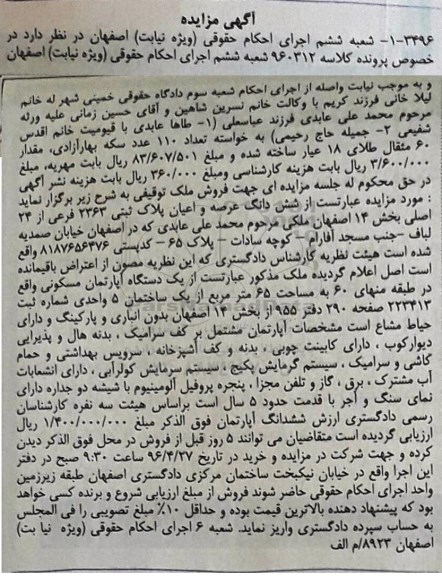 آگهی مزایده
۱-۳۴۹۶- شعبه ششم اجرای احکام حقوقی (ویژه نیابت) اصفهان در نظر دارد در
خصوص پرونده کلاسه ۹۶۰۳۱۲ شعبه ششم اجرای احکام حقوقی (ویژه نیابت) اصفهان
و به موجب نیابت واصله از اجرای احکام شعبه سوم دادگاه حقوقی خمینی شهر له خانم
لیلا خانی فرزند کریم با وکالت خانم نسرین شاهین و آقای حسین زمانی علیه ورثه
مرحوم محمد علی عابدی فرزند عباسعلی (۱- طاها عابدی با قیومیت خانم اقدس
شفیعی ۲- جمیله حاج رحیمی) به خواسته تعداد ۱۱۰ عدد سکه بهارآزادی، مقدار
۶۰ مثقال طلای ۱۸ عیار ساخته شده و مبلغ ۸۳/۶۰۷/۵۰۱ ریال بابت مهریه، مبلغ
۳/۶۰۰/۰۰۰ ریال بابت هزینه کارشناسی ومبلغ ۳۶۰/۰۰۰ ریال بابت هزینه نشر آگهی
در حق محکوم له جلسه مزایده ای جهت فروش ملک توقیفی به شرح زیر برگزار نماید
: مورد مزایده عبارتست از شش دانگ عرصه و اعیان پلاک ثبتی ۲۳۶۳ فرعی از ۲۳
اصلی بخش ۱۴ اصفهان ملکی مرحوم محمد علی عابدی که در اصفهان خیابان صمدیه
لباف -جنب مسجد آفارام - کوچه سادات - پلاک ۶۵ - کدپستی ۸۱۸۷۶۵۶۴۷۶ واقع
شده است هیئت نظریه کارشناس دادگستری که این نظریه مصون از اعتراض باقیمانده
است اصل اعلام گردیده ملک مذکور عبارتست از یک دستگاه آپارتمان مسکونی واقع
در طبقه منهای ۶۰ به مساحت ۶۵ متر مربع از یک ساختمان ۵ واحدی شماره ثبت
۲۲۳۴۱۳ صفحه ۲۹۰ دفتر ۹۵۵ از بخش ۱۴ اصفهان بدون انباری و پارکینگ و دارای
حیاط مشاع است مشخصات آپارتمان مشتمل بر کف سرامیک ، بدنه هال و پذیرایی
دیوارکوب ، دارای کابینت چوبی ، بدنه و کف آشپزخانه ، سرویس بهداشتی و حمام
کاشی و سرامیک ، سیستم گرمایش پکیج ، سیستم سرمایش کولرآبی ، دارای انشعابات
آب مشترک ، برق ، گاز و تلفن مجزا ، پنجره پروفیل آلومینیوم با شیشه دو جداره دارای
نمای سنگ و آجر با قدمت حدود ۵ سال است براساس هیئت سه نفره کارشناسان
رسمی دادگستری ارزش ششدانگ آپارتمان فوق الذکر مبلغ ۱/۴۰۰/۰۰۰/۰۰۰ ریال
ارزیابی گردیده است متقاضیان می توانند ۵ روز قبل از فروش در محل فوق الذکر دیدن
کرده و جهت شرکت در مزایده و خرید در تاریخ ۹۶/۴/۲۷ ساعت ۹:۳۰ صبح در دفتر
این اجرا واقع در خیابان نیکبخت ساختمان مرکزی دادگستری اصفهان طبقه زیرزمین
واحد اجرای احکام حقوقی حاضر شوند فروش از مبلغ ارزیابی شروع و برنده کسی خواهد
بود که پیشنهاد دهنده بالاترین قیمت بوده و حداقل ۱۰٪ مبلغ تصویبی را فی المجلس
به حساب سپرده دادگستری واریز نماید. شعبه ۶ اجرای احکام حقوقی (ویژه نیا بت)
اصفهان ۸۹۲۳/م الف